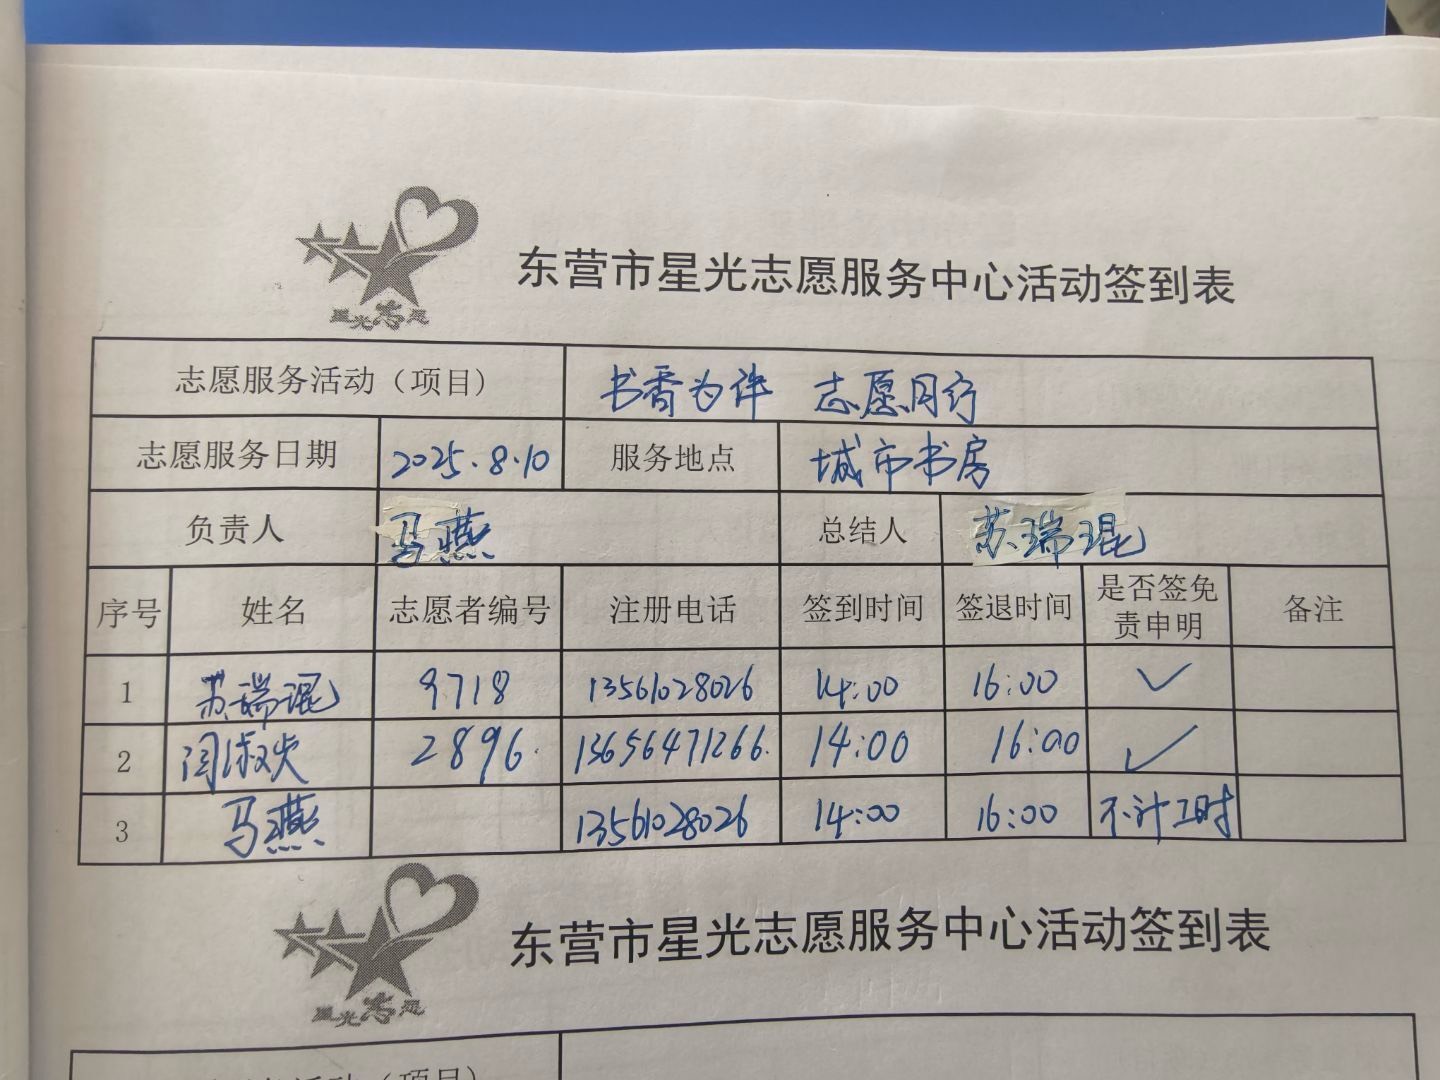 星光志愿
东营市星光志愿服务中心活动签到表
志愿服务活动（项目） 书香为伴 志愿同行
志愿服务日期 2025.8.10 服务地点 城市书房
负责人 马燕 总结人 苏瑞琨
序号 姓名 志愿者编号 注册电话 签到时间 签退时间 是否签免责申明 备注
1 苏瑞琨 9718 13561028026 14:00 16:00 ✓
2 闫淑 2896. 13656471266. 14:00 16:00 ✓
3 马燕 13561028026 14:00 16:00 不计工时
星光志愿
东营市星光志愿服务中心活动签到表